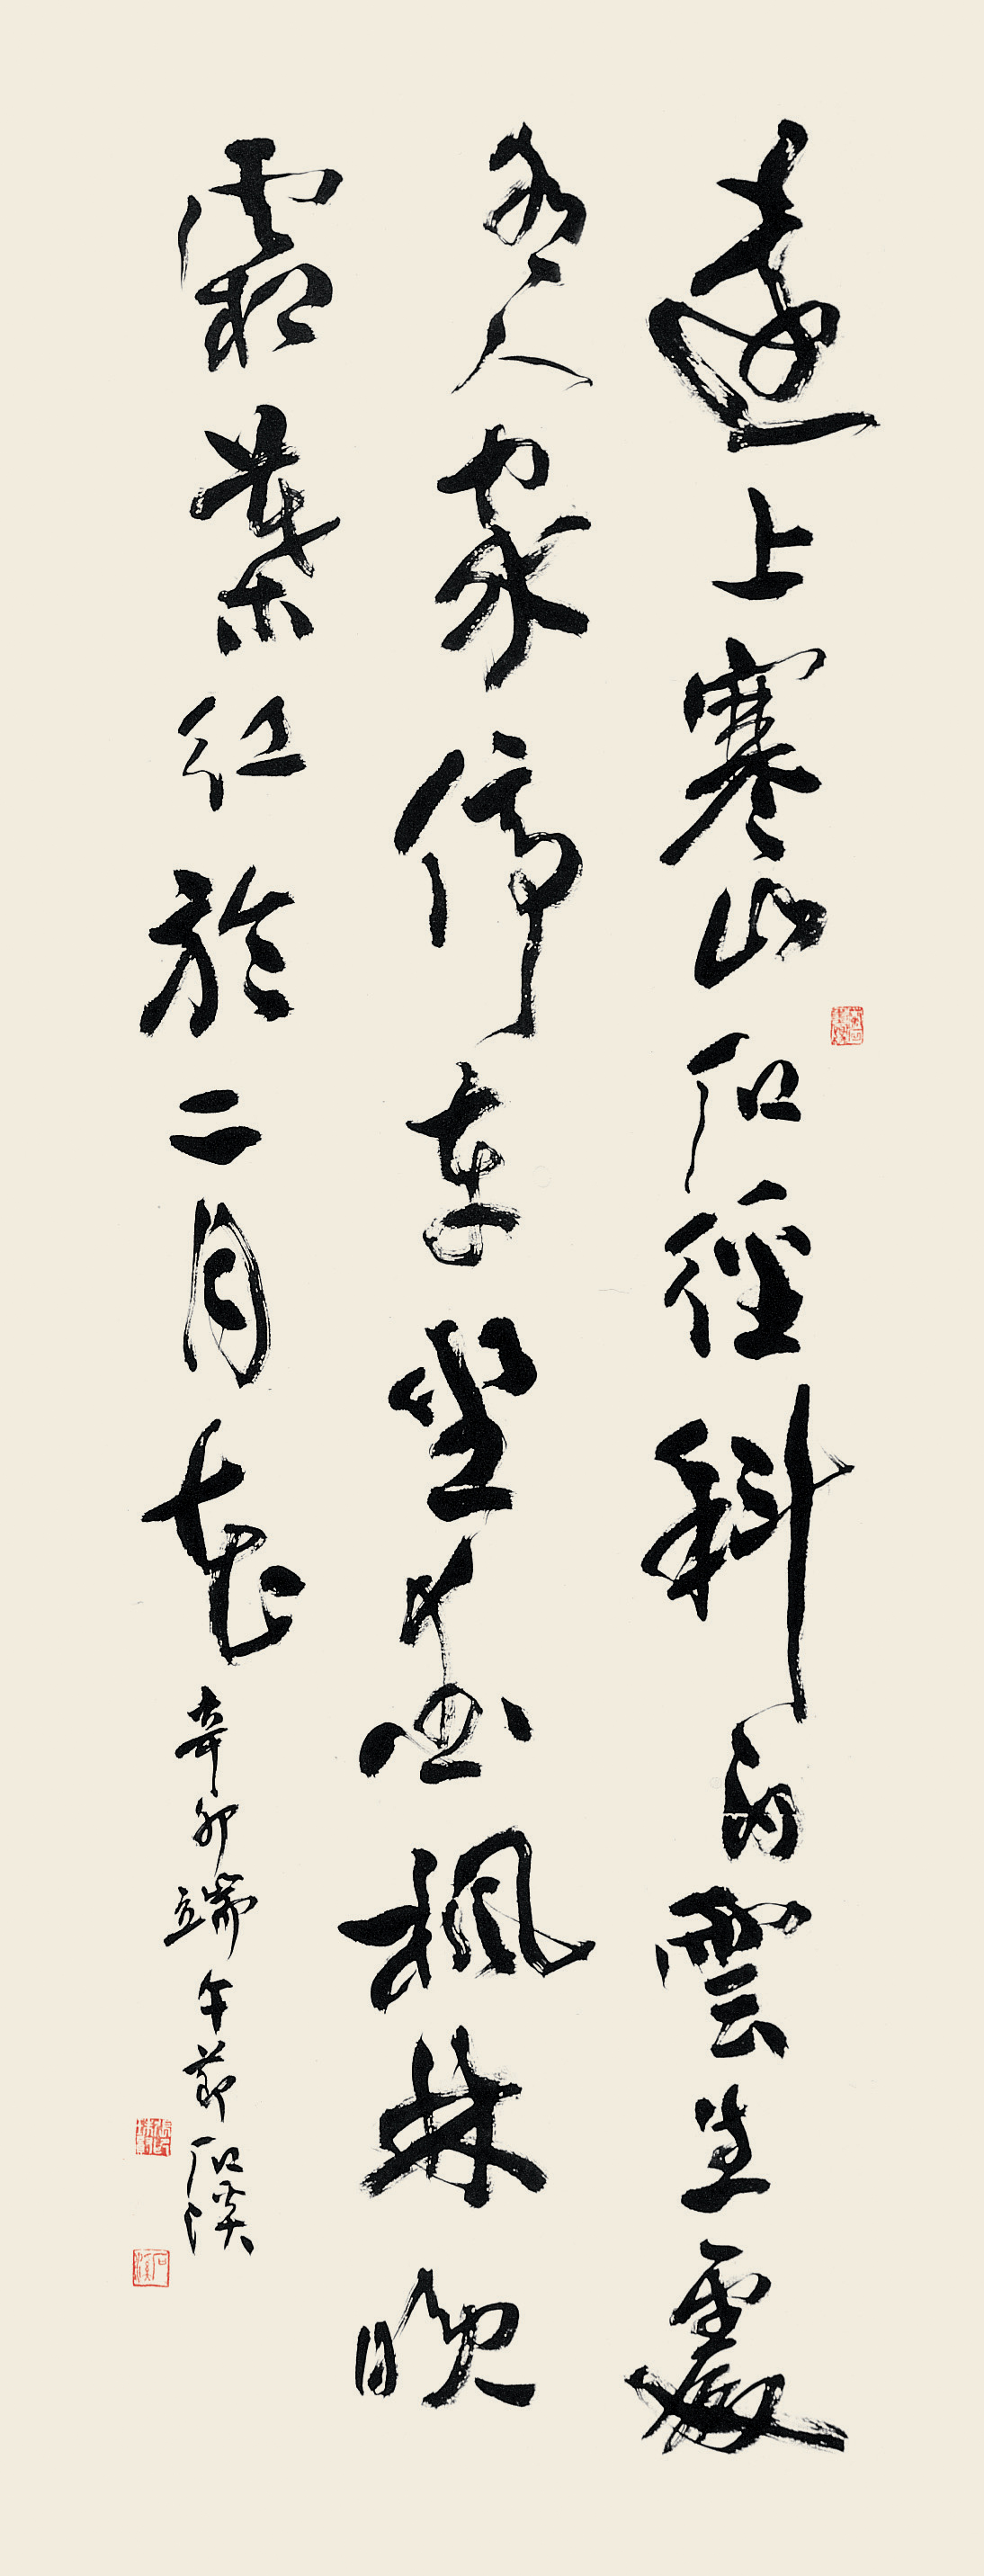 遠上寒山石徑斜白雲生處
有人家停車坐愛楓林晚
霜葉紅於二月花
辛卯端午節石溪
石溪